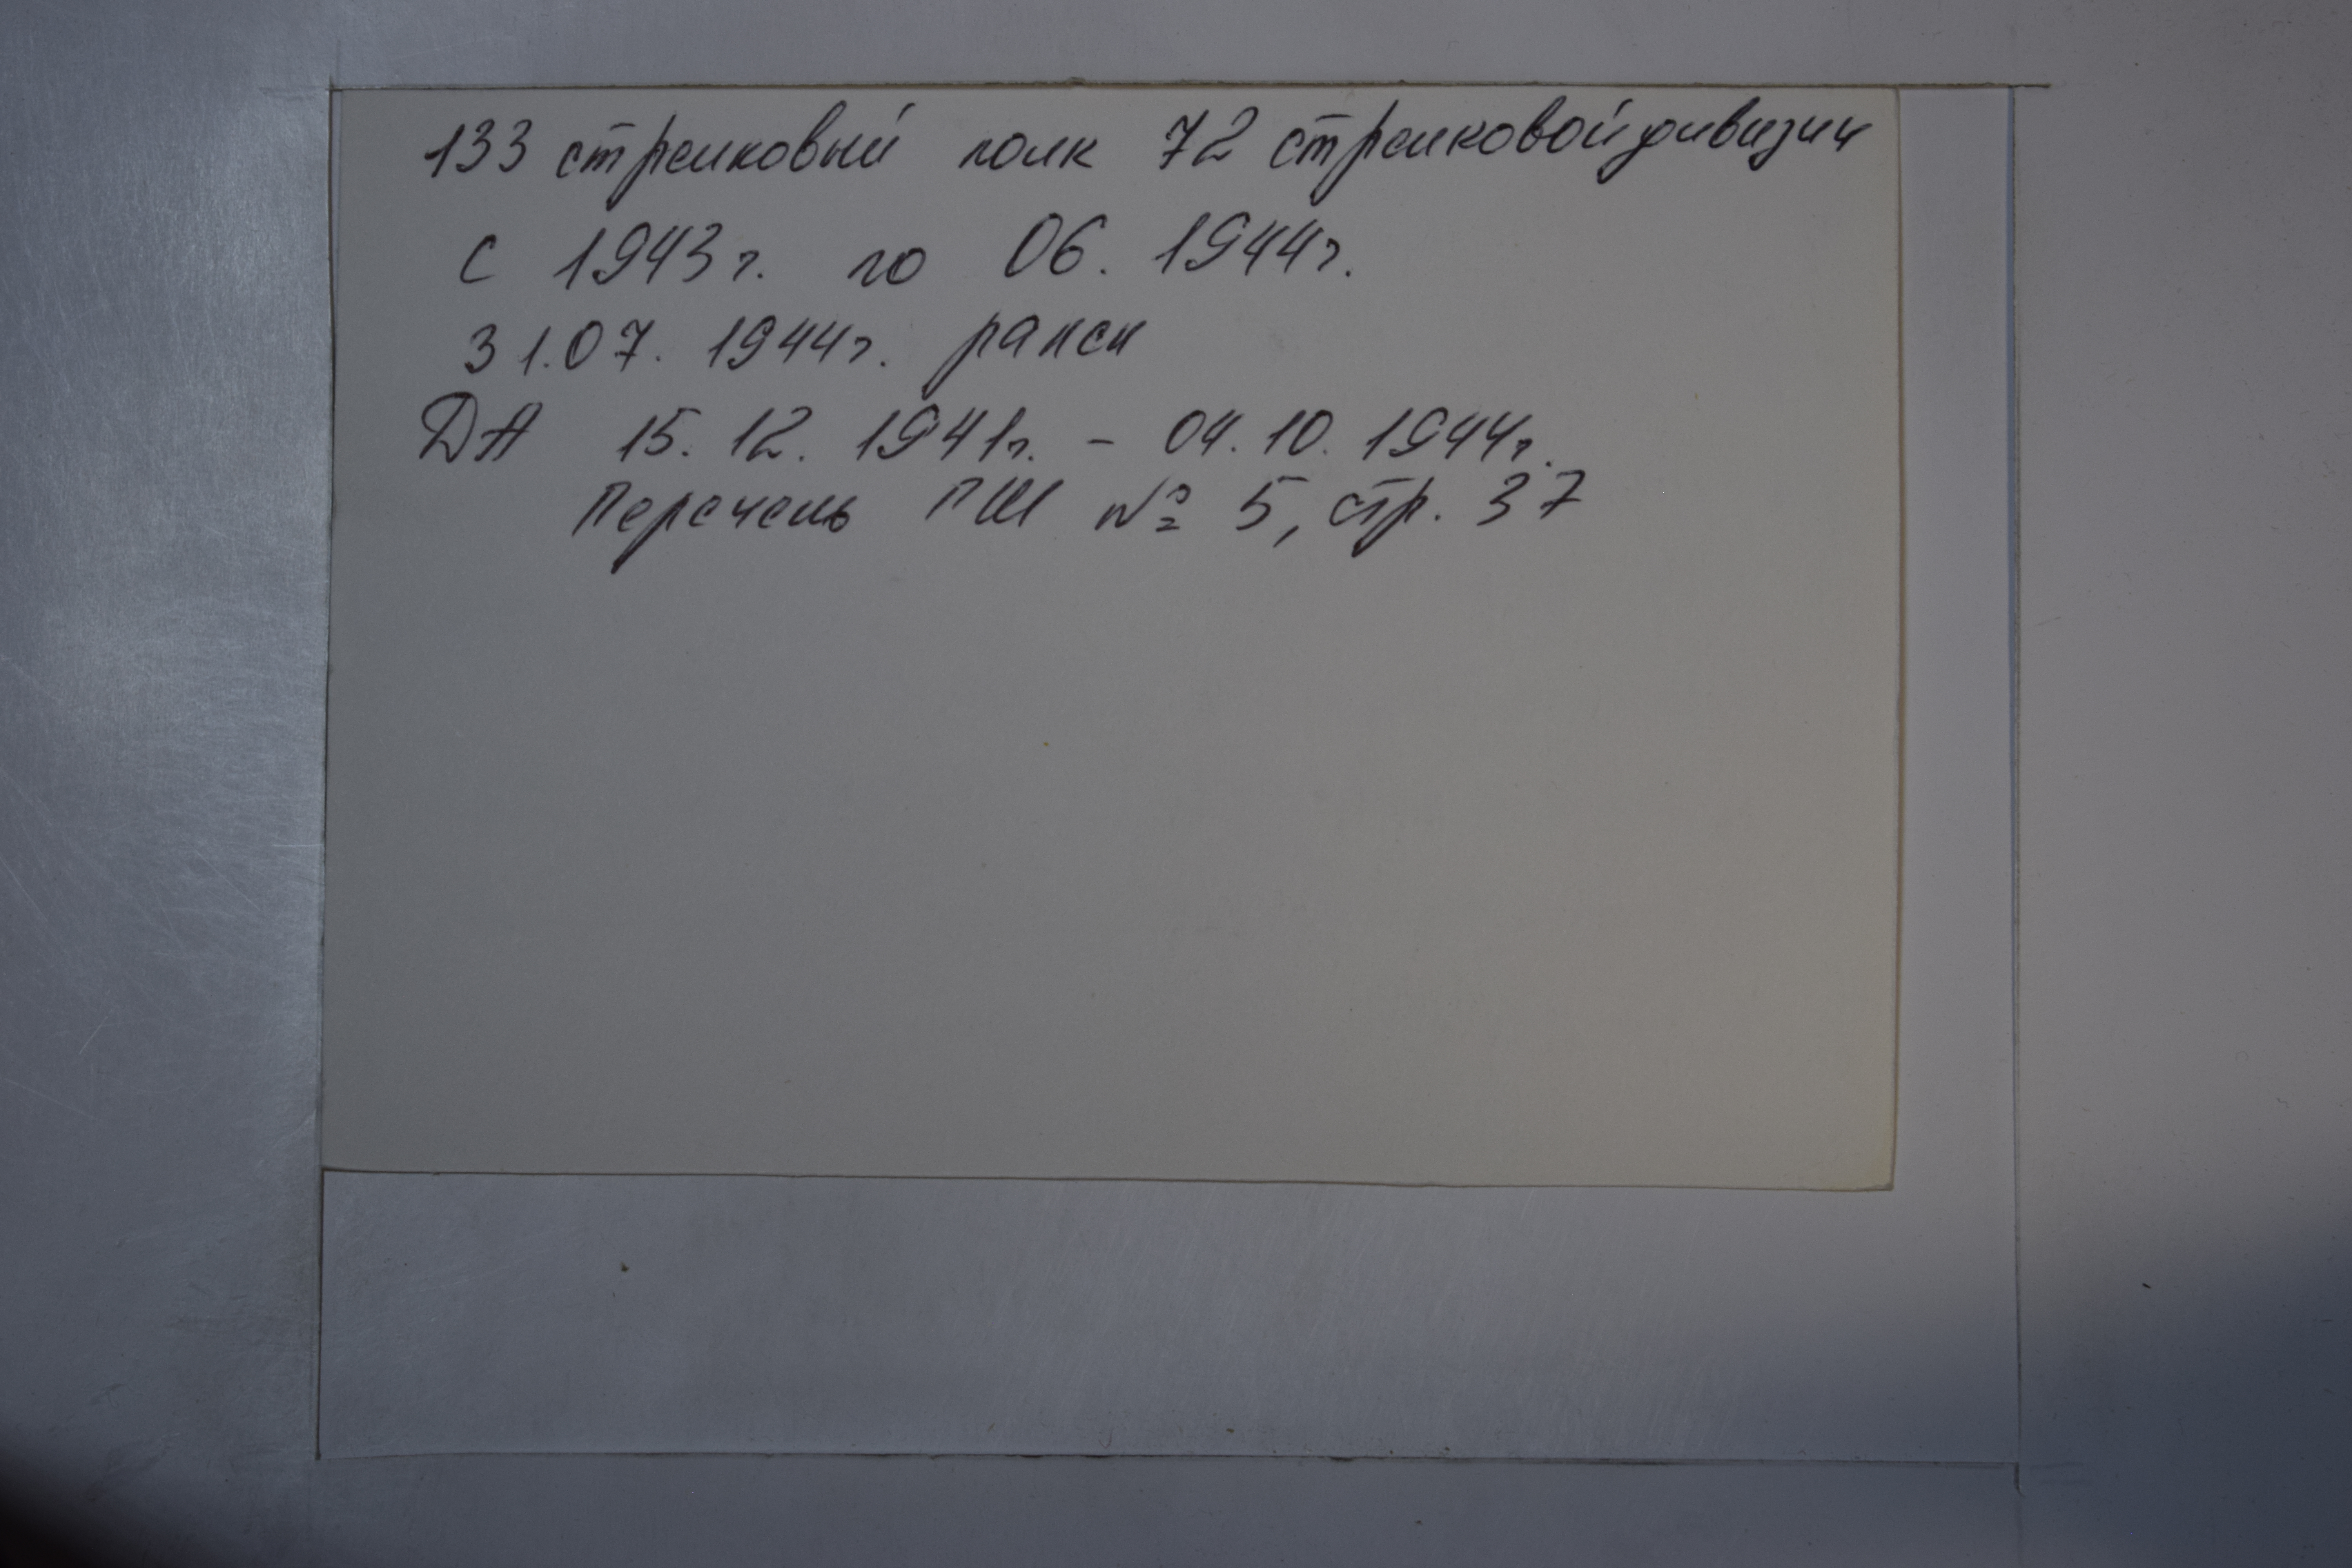 133 стрелковый полк 72 стрелковой дивизии
с 1943г. по 06. 1944г.
31.07. 1944г. ранен
ДА 15. 12. 1941г. - 04. 10. 1944г.
Перечень ГШ № 5, стр. 37